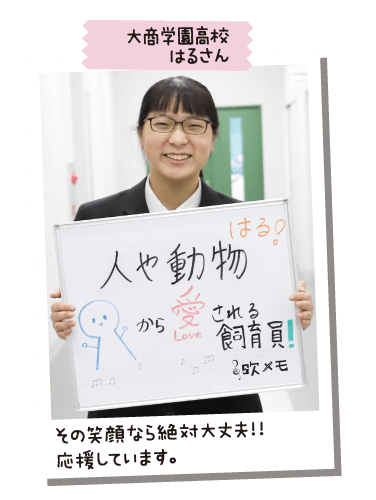 大商学園高校
はるさん
はる。
人や動物
から愛される
Love
飼育員!
欧メモ
その笑顔なら絶対大丈夫!!
応援しています。